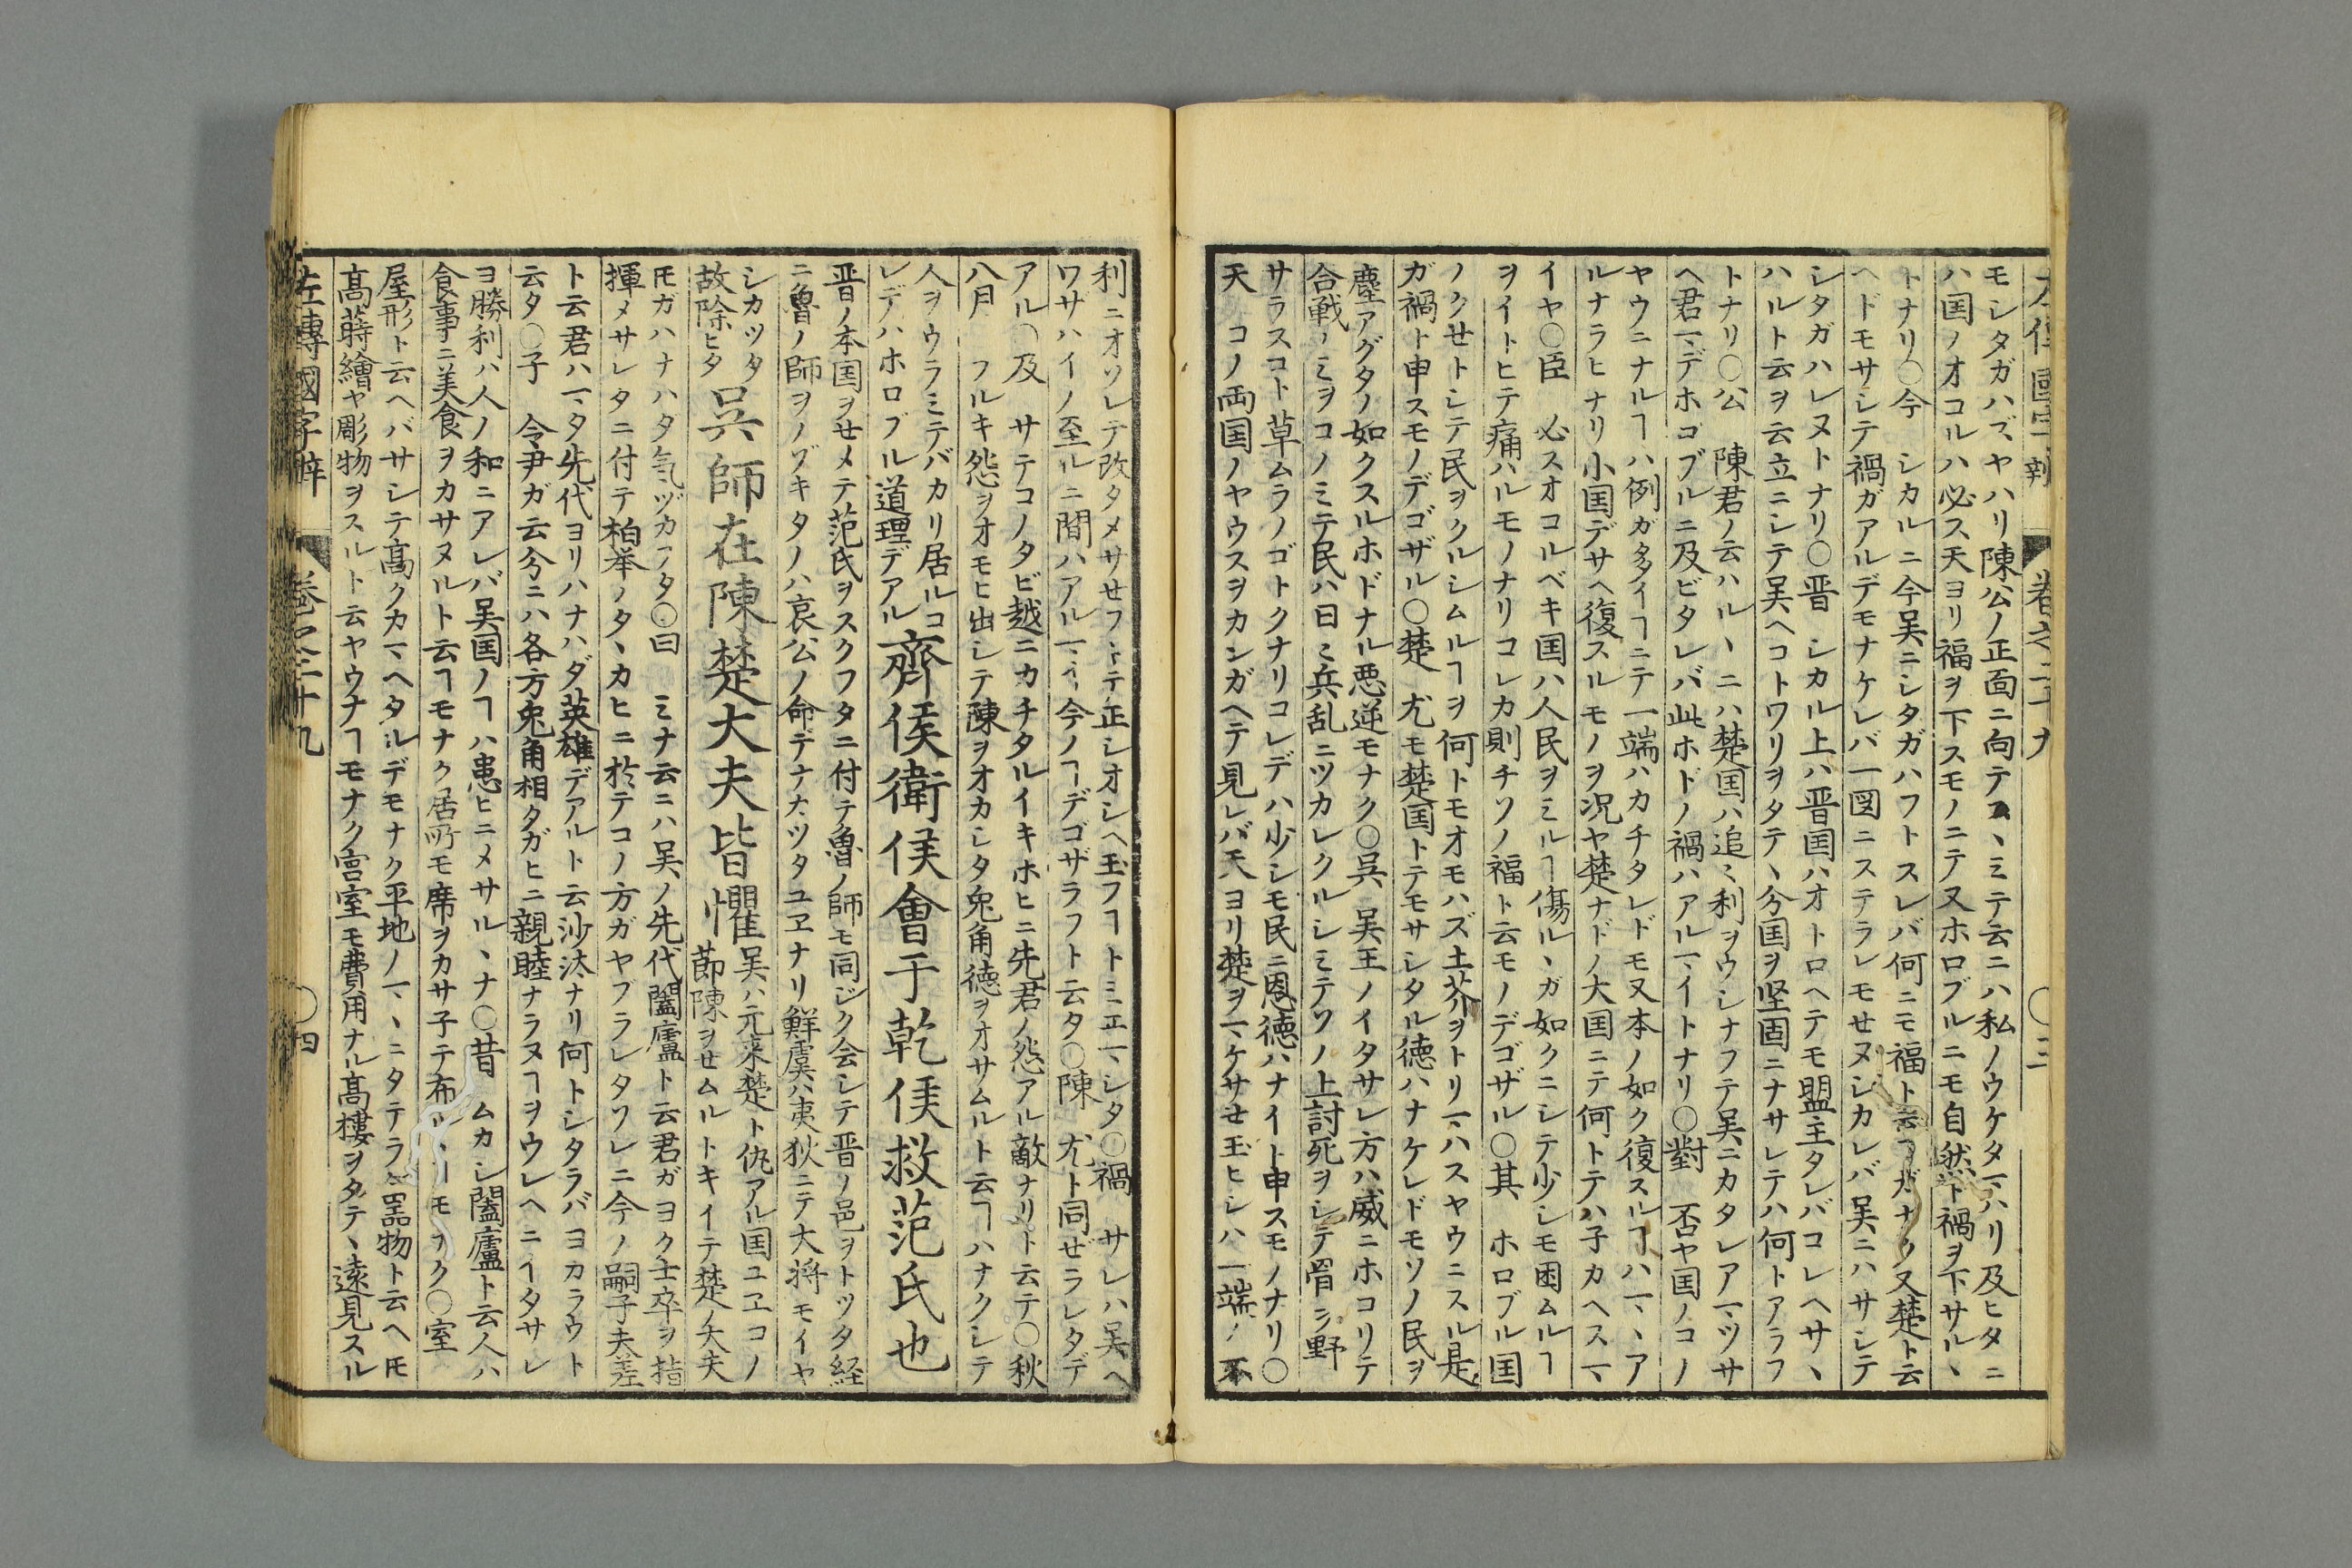 左傳國字辯 卷之二十九 〇三
モシタガハズヤハリ陳公ノ正面ニ向テスヽミテ云ニハ私ノウケタマハリ及ヒタニ
ハ国ノオコルハ必ス天ヨリ福ヲ下スモノニテ又ホロブルニモ自然ト禍ヲ下サルヽ
トナリ〇今 シカルニ今吴ニシタガハフトスレバ何ニモ福ト云ヿガナク又楚ト云
ヘドモサシテ禍ガアルデモナケレバ一図ニステラレモセヌシカレバ吴ニハサシテ
シタガハレヌトナリ〇晋 シカル上ハ晋国ハオトロヘテモ盟主タレバコレヘサヽ
ハルト云ヲ云立ニシテ吴ヘコトワリヲタテヽ分国ヲ堅固ニナサレテハ何トアラフ
トナリ〇公 陳君ノ云ハルヽニハ楚国ハ追々利ヲウシナフテ吴ニカタレアマツサ
ヘ君マデホロブルニ及ビタレバ此ホドノ禍ハアルマイトナリ〇對 否ヤ国ノコノ
ヤウニナルヿハ例ガ多イヿニテ一端ハカチタレドモ又本ノ如ク復スルヿハマヽア
ルナラヒナリ小国デサヘ復スルモノヲ況ヤ楚ナドノ大国ニテ何トテハ子カヘスマ
イヤ〇臣 必スオコルベキ国ハ人民ヲミルヿ傷ルヽガ如クニシテ少シモ困ムルヿ
ヲイトヒテ痛ハルモノナリコレカ則チソノ福ト云モノデゴザル〇其 ホロブル国
ノクセトシテ民ヲクルシムルヿヲ何トモオモハズ土芥ヲトリマハスヤウニスル是
ガ禍ト申スモノデゴザル〇楚 尤モ楚国トテモサシタル徳ハナケレドモソノ民ヲ
塵アグタノ如クスルホドナル悪逆モナク〇吴 吴王ノイタサレ方ハ威ニホコリテ
合戦ノミヲコノミテ民ハ日ミ兵乱ニツカレクルシミテソノ上討死ヲシテ骨ヲ野
サラスコト草ムラノゴトクナリコレデハ少シモ民ニ恩徳ハナイト申スモノナリ〇
天 コノ両国ノヤウスヲカンガヘテ見レバ天ヨリ楚ヲマケサセ玉ヒシハ一端ノ不
利ニオソレテ改タメサセフトテ正シオシヘ玉フヿトミエマシタ〇禍 サレハ吴ヘ
ワサハイノ至ルニ間ハアルマイ今ノヿデゴザラフト云タ〇陳 尤ト同ぜラレタデ
アル〇及 サテコノタビ越ニカチタルイキホヒニ先君ノ怨アル敵ナリト云テ〇秋
八月 フルキ怨ヲオモヒ出シテ陳ヲオカシタ兔角徳ヲオサムルト云ヿハナクシテ
人ヲウラミテバカリ居ルコ
レデハホロブル道理デアル
齊侯衛侯會于乾侯救范氏也
晋ノ本国ヲせメテ范氏ヲスクフタニ付テ魯ノ師モ同ジク会シテ晋ノ邑ヲトツタ経
ニ魯ノ師ヲノゾキタノハ哀公ノ命デナカツタユヱナリ鮮虞ハ夷狄ニテ大将モイヤ
シカツタ
故除ヒタ
吴師在陳楚大夫皆懼
吴ハ元来楚ト仇アル国ユヱコノ
節陳ヲせムルトキイテ楚ノ大夫
𪜈ガハナハタ気ヅカフタ〇曰 ミナ云ニハ吴ノ先代闔廬ト云君ガヨク士卒ヲ指
揮メサレタニ付テ柏挙ノタヽカヒニ於テコノ方ガヤブラレタワレニ今ノ嗣子夫差
ト云君ハマタ先代ヨリハナハダ英雄デアルト云沙汰ナリ何トシタラバヨカラウト
云タ〇子 令尹ガ云今ニハ各方兔角相タガヒニ親睦ナラヌヿヲウレヘニイタサレ
ヨ勝利ハ人ノ和ニアレバ吴国ノヿハ患ヒニメサルヽナ〇昔 ムカシ闔廬ト云人ハ
食事ニ美食ヲカサヌルト云ヿモナク居所モ席ヲカサ子テ布ルヽヿモナク〇室
屋形ト云ヘバサシテ高クカマヘタルデモナク平地ノマヽニタテラレ噐物ト云ヘ𪜈
高蒔繪ヤ彫物ヲスルト云ヤウナヿモナク宮室モ費用ナル高樓ヲタテヽ遠見スル
左傳國字辯 卷之二十九 〇四